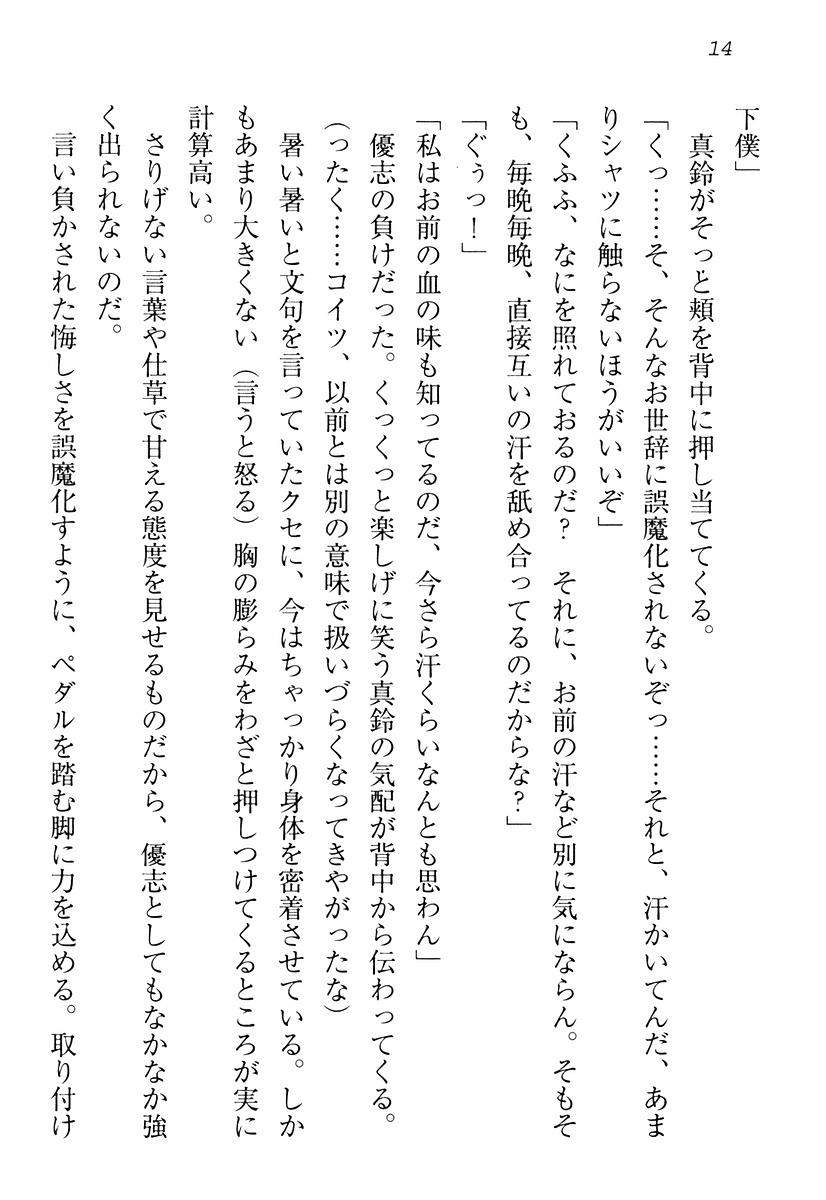 14
下僕」
　真鈴がそっと頬を背中に押し当ててくる。
「くっ……そ、そんなお世辞に誤魔化されないぞっ……それと、汗かいてんだ、あま
りシャツに触らないほうがいいぞ」
「くふふ、なにを照れておるのだ？　それに、お前の汗など別に気にならん。そもそ
も、毎晩毎晩、直接互いの汗を舐め合ってるのだからな？」
「ぐぅっ！」
「私はお前の血の味も知ってるのだ、今さら汗くらいなんとも思わん」
　優志の負けだった。くっくっと楽しげに笑う真鈴の気配が背中から伝わってくる。
（ったく……コイツ、以前とは別の意味で扱いづらくなってきやがったな）
　暑い暑いと文句を言っていたクセに、今はちゃっかり身体を密着させている。しか
もあまり大きくない（言うと怒る）胸の膨らみをわざと押しつけてくるところが実に
計算高い。
　さりげない言葉や仕草で甘える態度を見せるものだから、優志としてもなかなか強
く出られないのだ。
　言い負かされた悔しさを誤魔化すように、ペダルを踏む脚に力を込める。取り付け